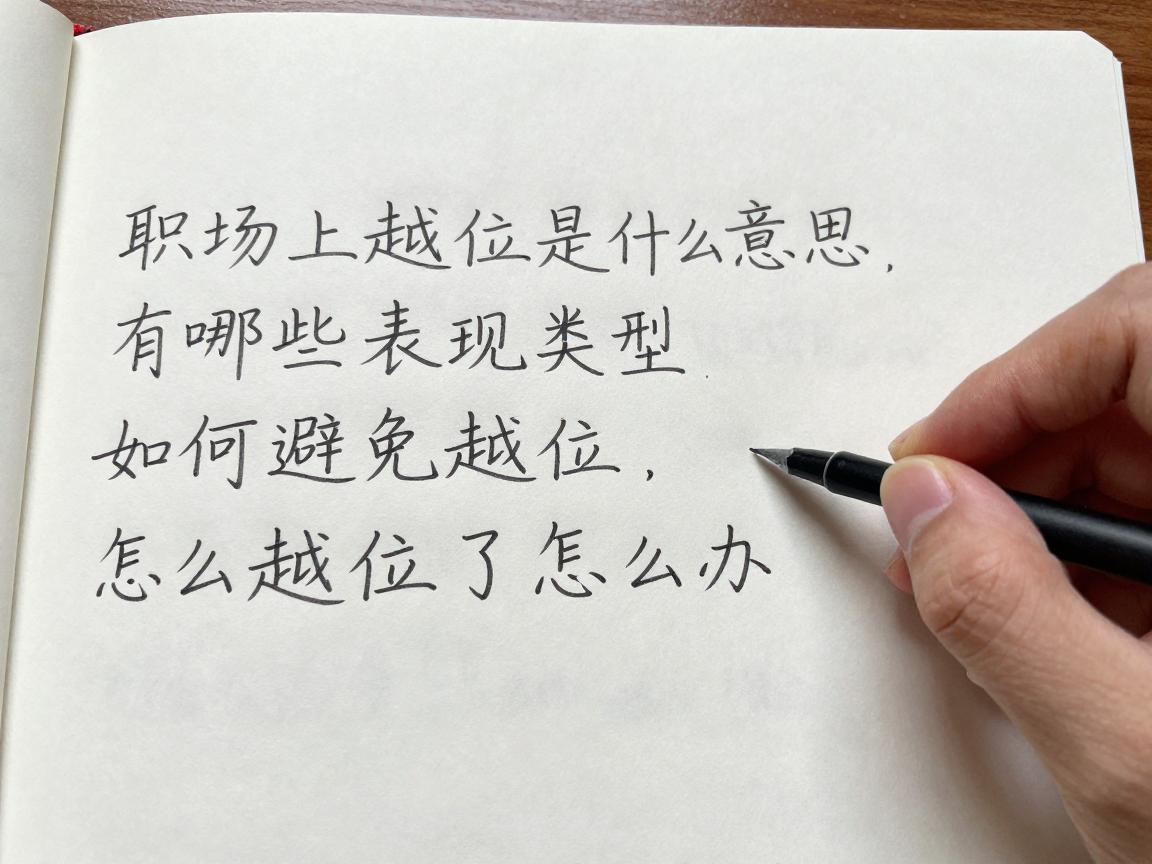 职场上越位是什么意思,
有哪些表现类型
如何避免越位,
怎么越位了怎么办